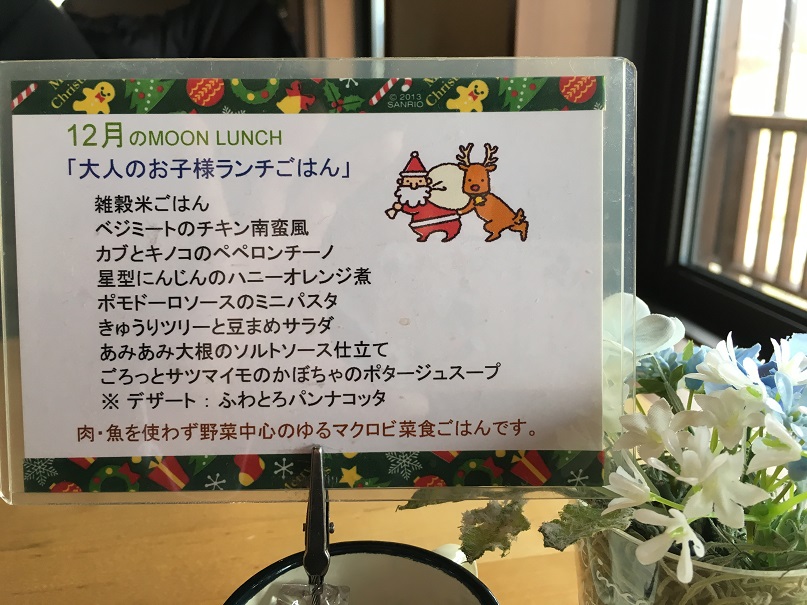 © 2013
SANRIO
12月のMOON LUNCH
「大人のお子様ランチごはん」
雑穀米ごはん
ベジミートのチキン南蛮風
カブとキノコのペペロンチーノ
星型にんじんのハニーオレンジ煮
ポモドーロソースのミニパスタ
きゅうりツリーと豆まめサラダ
あみあみ大根のソルトソース仕立て
ごろっとサツマイモのかぼちゃのポタージュスープ
※ デザート : ふわとろパンナコッタ
肉・魚を使わず野菜中心のゆるマクロビ菜食ごはんです。